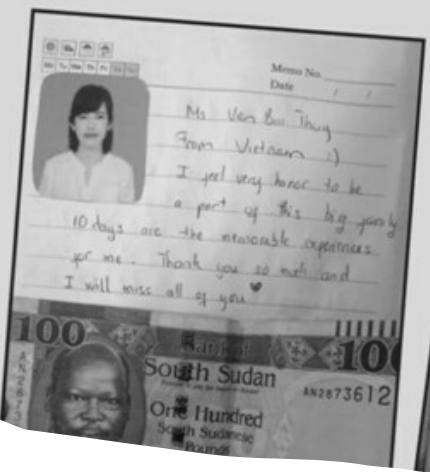 Mo Tu We Th Fr Sa Su
Memo No.
Date / /
Ms Van Bui Thuy
From Vietnam :)
I feel very honor to be
a part of this big family
10 days are the memorable experiences
for me. Thank you so much and
I will miss all of you ♥
100
100
Bank of
South Sudan
AN2873612
One Hundred
South Sudanese
Pounds